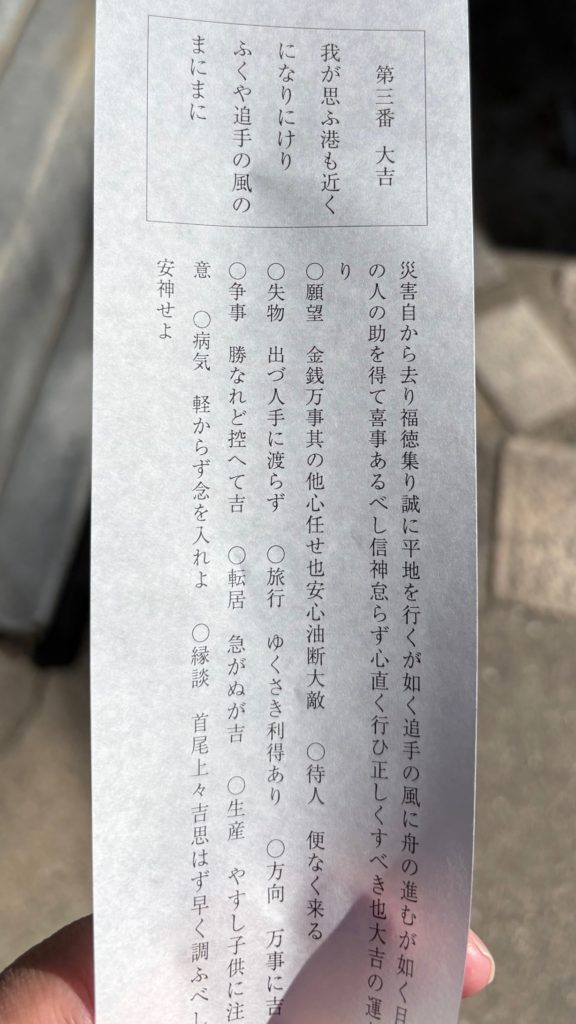 第三番　大吉
我が思ふ港も近く
になりにけり
ふくや追手の風の
まにまに
災害自から去り福徳集り誠に平地を行くが如く追手の風に舟の進むが如く目
の人の助を得て喜事あるべし信神怠らず心直く行ひ正しくすべき也大吉の運
り
○願望　金銭万事其の他心任せ也安心油断大敵　○待人　便なく来る
○失物　出づ人手に渡らず　○旅行　ゆくさき利得あり　○方向　万事に吉
○争事　勝なれど控へて吉　○転居　急がぬが吉　○生産　やすし子供に注
意　○病気　軽からず念を入れよ　○縁談　首尾上々吉思はず早く調ふべし
安神せよ